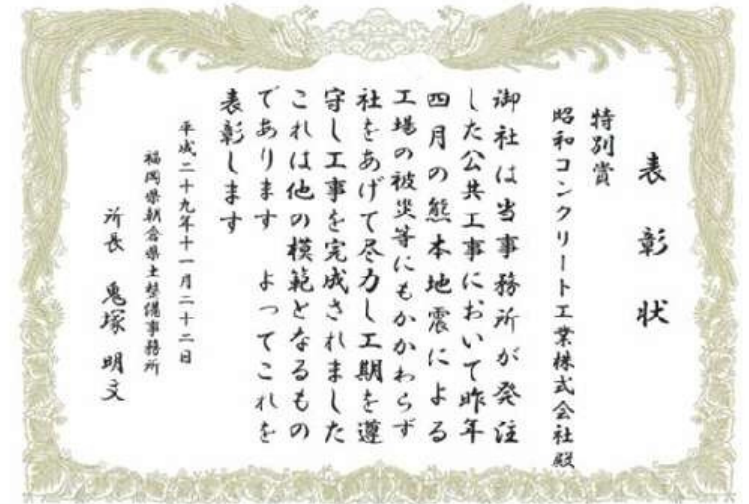 表彰状
特別賞
昭和コンクリート工業株式会社殿
御社は当事務所が発注
した公共工事において昨年
四月の熊本地震による
工場の被災等にもかかわらず
社をあげて尽力し工期を遵
守し工事を完成されました
これは他の模範となるもの
であります　よってこれを
表彰します
平成二十九年十一月二十二日
福岡県朝倉県土整備事務所
所長　鬼塚　明文